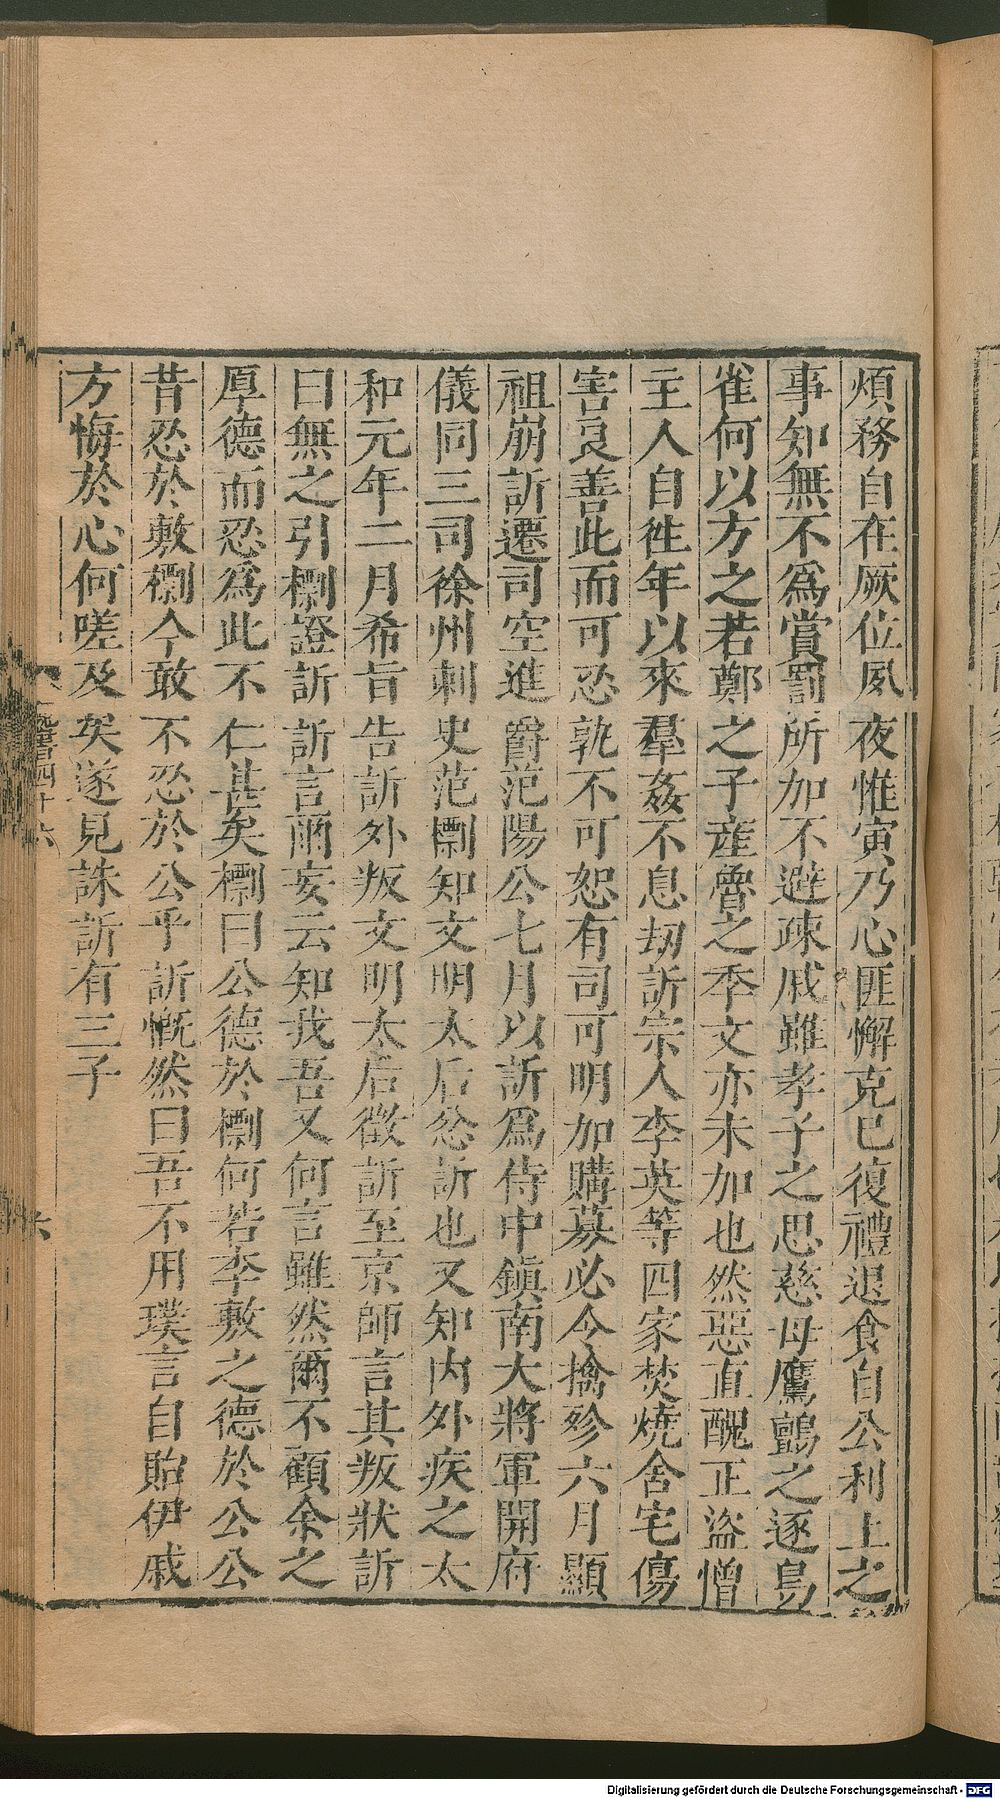 煩務自在厥位夙夜惟寅乃心匪懈克已復禮退食自公利上之
事知無不爲賞罰所加不避疎戚雖孝子之思慈母鷹鸇之逐鳥
雀何以方之若鄭之子產魯之季文亦未加也然惡直醜正盜憎
主人自徃年以來羣姦不息劫訢宗人李英等四家焚燒舍宅傷
害良善此而可忍孰不可恕有司可明加購募必令擒殄六月顯
祖崩訢遷司空進爵范陽公七月以訢爲侍中鎮南大將軍開府
儀同三司徐州刺史范檦知文明太后忿訢也又知內外疾之太
和元年二月希旨告訢外叛文明太后徵訢至京師言其叛狀訢
曰無之引檦證訢訢言爾妄云知我吾又何言雖然爾不顧余之
厚德而忍爲此不仁甚矣檦曰公德於檦何若李敷之德於公公
昔忍於敷檦今敢不忍於公乎訢慨然曰吾不用璞言自貽伊戚
方悔於心何嗟及矣遂見誅訢有三子
魏書四十六
六
Digitalisierung gefördert durch die Deutsche Forschungsgemeinschaft - DFG